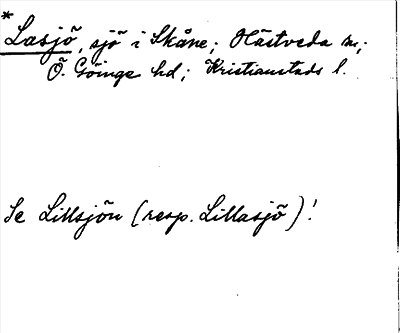 *Lasjö, sjö i Skåne; Hästveda sn;
Ö. Göinge hd; Kristianstads l.
Se Lillsjön (resp. Lillasjö)!